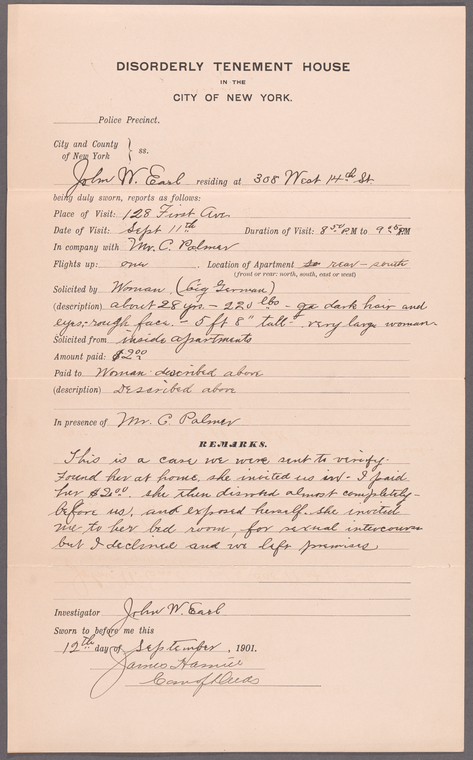 DISORDERLY TENEMENT HOUSE
IN THE
CITY OF NEW YORK.
Police Precinct.
City and County
of New York } ss.
John W. Earl residing at 308 West 14th St
being duly sworn, reports as follows:
Place of Visit: 128 First Ave
Date of Visit: Sept 11th Duration of Visit: 8 50 P.M to 9 PM
In company with Mr. C. Palmer
Flights up: one Location of Apartment rear - south
(front or rear: north, south, east or west)
Solicited by Woman (big German)
(description) about 28 yrs. - 220 lbs - dark hair and
eyes - rough face. - 5 ft 8" tall - very large woman.
Solicited from inside apartments
Amount paid: $2.00
Paid to Woman described above
(description) Described above
In presence of Mr. C. Palmer
REMARKS.
This is a case we were sent to verify.
Found her at home, she invited us in - I paid
her $2.00. she then disrobed almost completely
before us, and exposed herself. she invited
me to her bed room, for sexual intercourse
but I declined and we left premises
Investigator John W. Earl
Sworn to before me this
12th day of September, 1901.
James
Com of Deeds